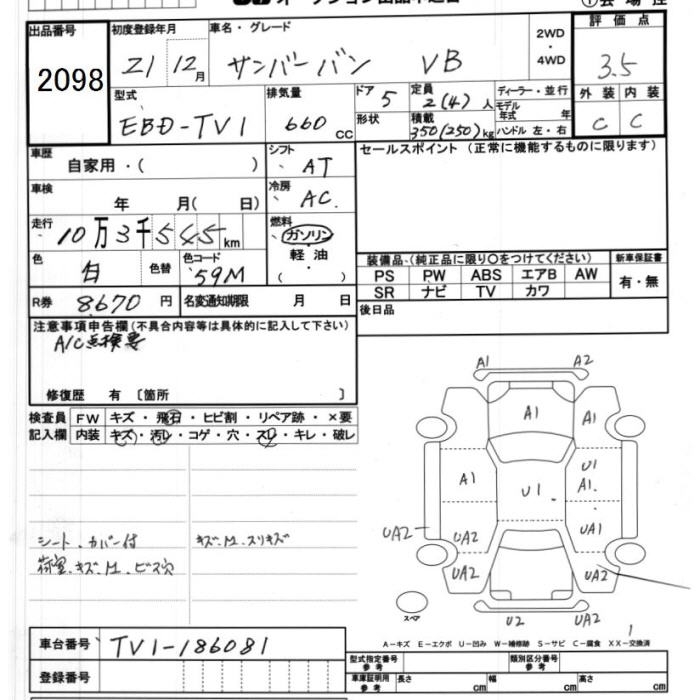 出品番号 初度登録年月 車名・グレード 2WD・4WD 評価点
2098 21 12月 サンバーバン VB 3.5
型式 排気量 ドア 5 定員 2(4)人 ディーラー・並行 外装 内装
EBD-TV1 660 cc 形状 積載 350(250)kg モデル年式 年 ハンドル 左・右 C C
車歴 自家用・( ) シフト AT セールスポイント(正常に機能するものに限ります)
車検 年 月( 日) 冷房 AC
走行 10万3千545km 燃料 ガソリン 軽油 ( ・ )
色 白 色替 色コード 59M
装備品(純正品に限り○をつけてください) 新車保証書
PS PW ABS エアB AW 有・無
SR ナビ TV カワ
R券 8.670円 名変通知期限 月 日 後日品
注意事項申告欄(不具合内容等は具体的に記入して下さい)
A/C点検要
修復歴 有 [箇所 ]
検査員記入欄 FW キズ・飛石・ヒビ割・リペア跡・×要
内装 キズ・汚レ・コゲ・穴・スレ・キレ・破レ
シート、カバー付 キズ、M、スリキズ
荷室、キズ、M、ビス穴
A1 A2
A1 A1
A1 U1 U1 A1.
UA2 UA2 UA1
UA2 UA2
スペア U2 UA2
A-キズ E-エクボ U-凹み W-補修跡 S-サビ C-腐食 XX-交換済
車台番号 TV1-186081
登録番号
型式指定番号 参考 類別区分番号 参考
車庫証明用 参考 長さ cm 幅 cm 高さ cm